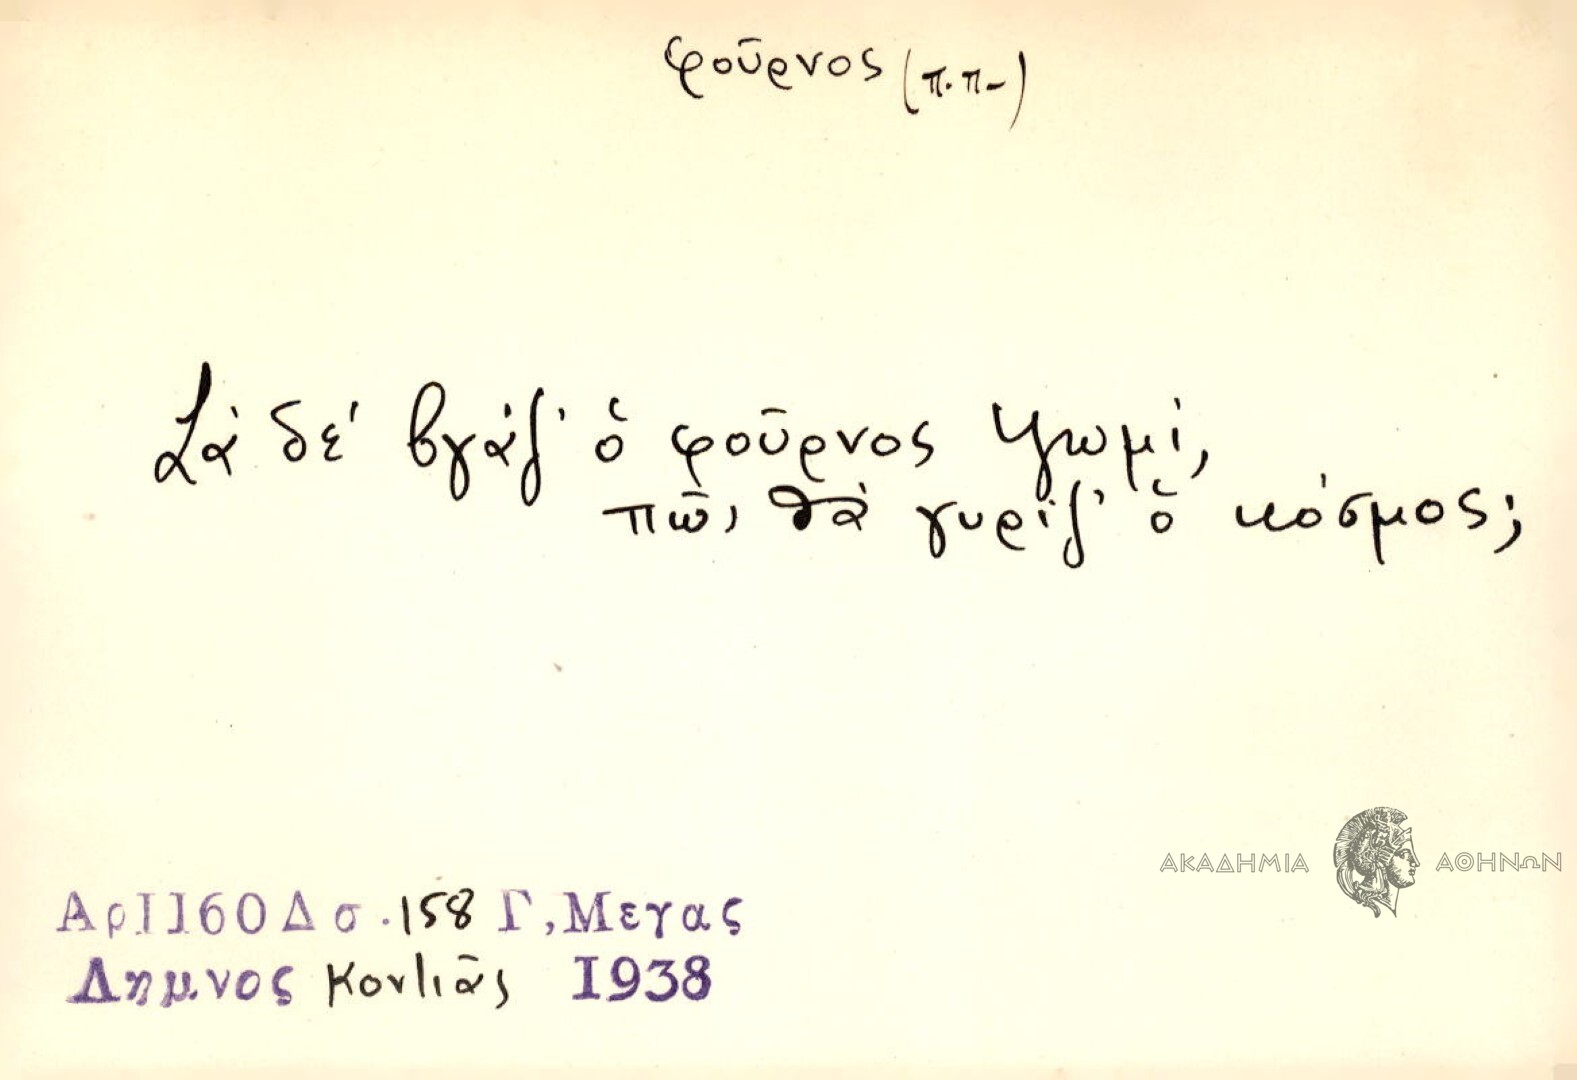 φοῦρνος (π.π-)
Σὰ δὲ' βγάζ' ὁ φοῦρνος ψωμὶ,
πῶς θὰ γυρίζ' ὁ κόσμος;
ΑΚΑΔΗΜΙΑ ΑΘΗΝΩΝ
Αρ1160Δ σ.158 Γ,Μεγας
Λημνος Κοντιᾶς 1938